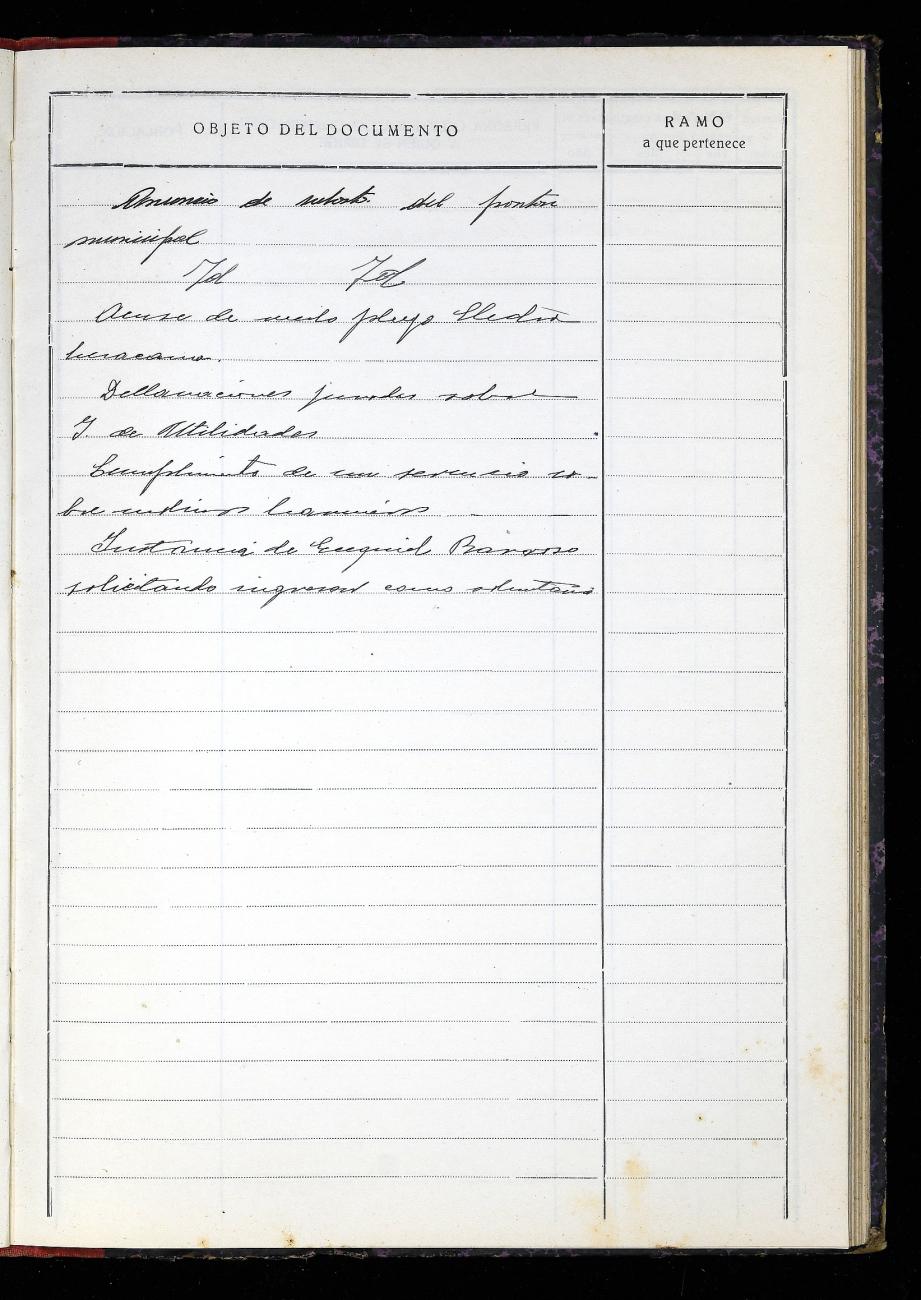 OBJETO DEL DOCUMENTO
RAMO
a que pertenece
Anuncio de subasta del fronton
municipal
Id Id
Acuse de pliego Electra
Declaraciones juradas sobre
I. de Utilidades
Cumplimiento de un servicio so-
bre indices
Instancia de Ezequiel Barroso
solicitando ingresar como voluntario